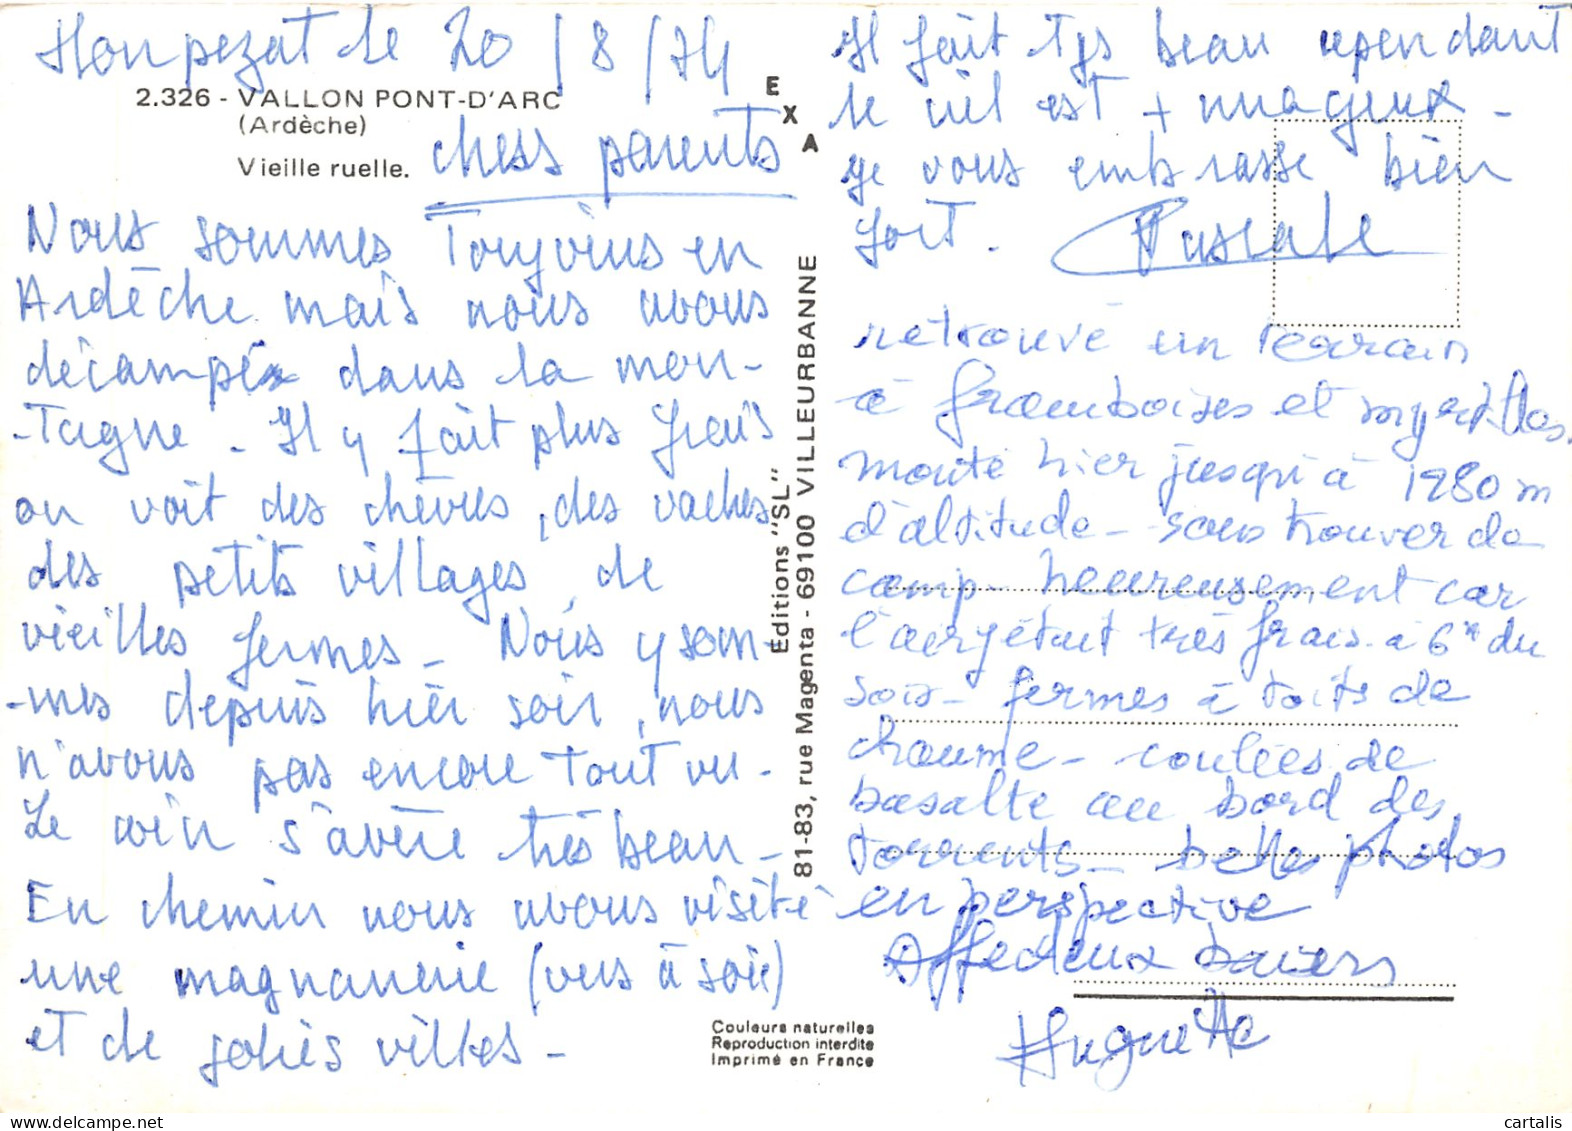 Monpezat le 20/8/74
2.326 - VALLON PONT-D'ARC
(Ardèche)
Vieille ruelle.
chers parents
Nous sommes Toujours en
Ardèche mais nous avons
décampé dans la mon-
-Tagne. Il y fait plus frais
on voit des chèvres, des vaches
des petits villages, de
vieilles fermes - Nous y som-
-mes depuis hier soir, nous
n'avons pas encore Tout vu -
Le coin s'avère très beau -
En chemin nous avons visité
une magnanerie (vers à soie)
et de jolies villes -
EXA
Editions "SL"
81-83, rue Magenta - 69100 VILLEURBANNE
Couleurs naturelles
Reproduction interdite
Imprimé en France
Il fait Tjs beau cependant
le ciel est + nuageux -
je vous embrasse bien
fort. Pascale
retrouvé un terrain
à framboises et myrtilles.
monté hier jusqu'à 1280 m
d'altitude - sans trouver de
camp - heureusement car
l'air était très frais à 6h du
soir - fermes à toits de
chaume - coulées de
basalte au bord des
torrents - belles photos
en perspective
Affectueux baisers
Huguette
cartcollectio | delcampe.net